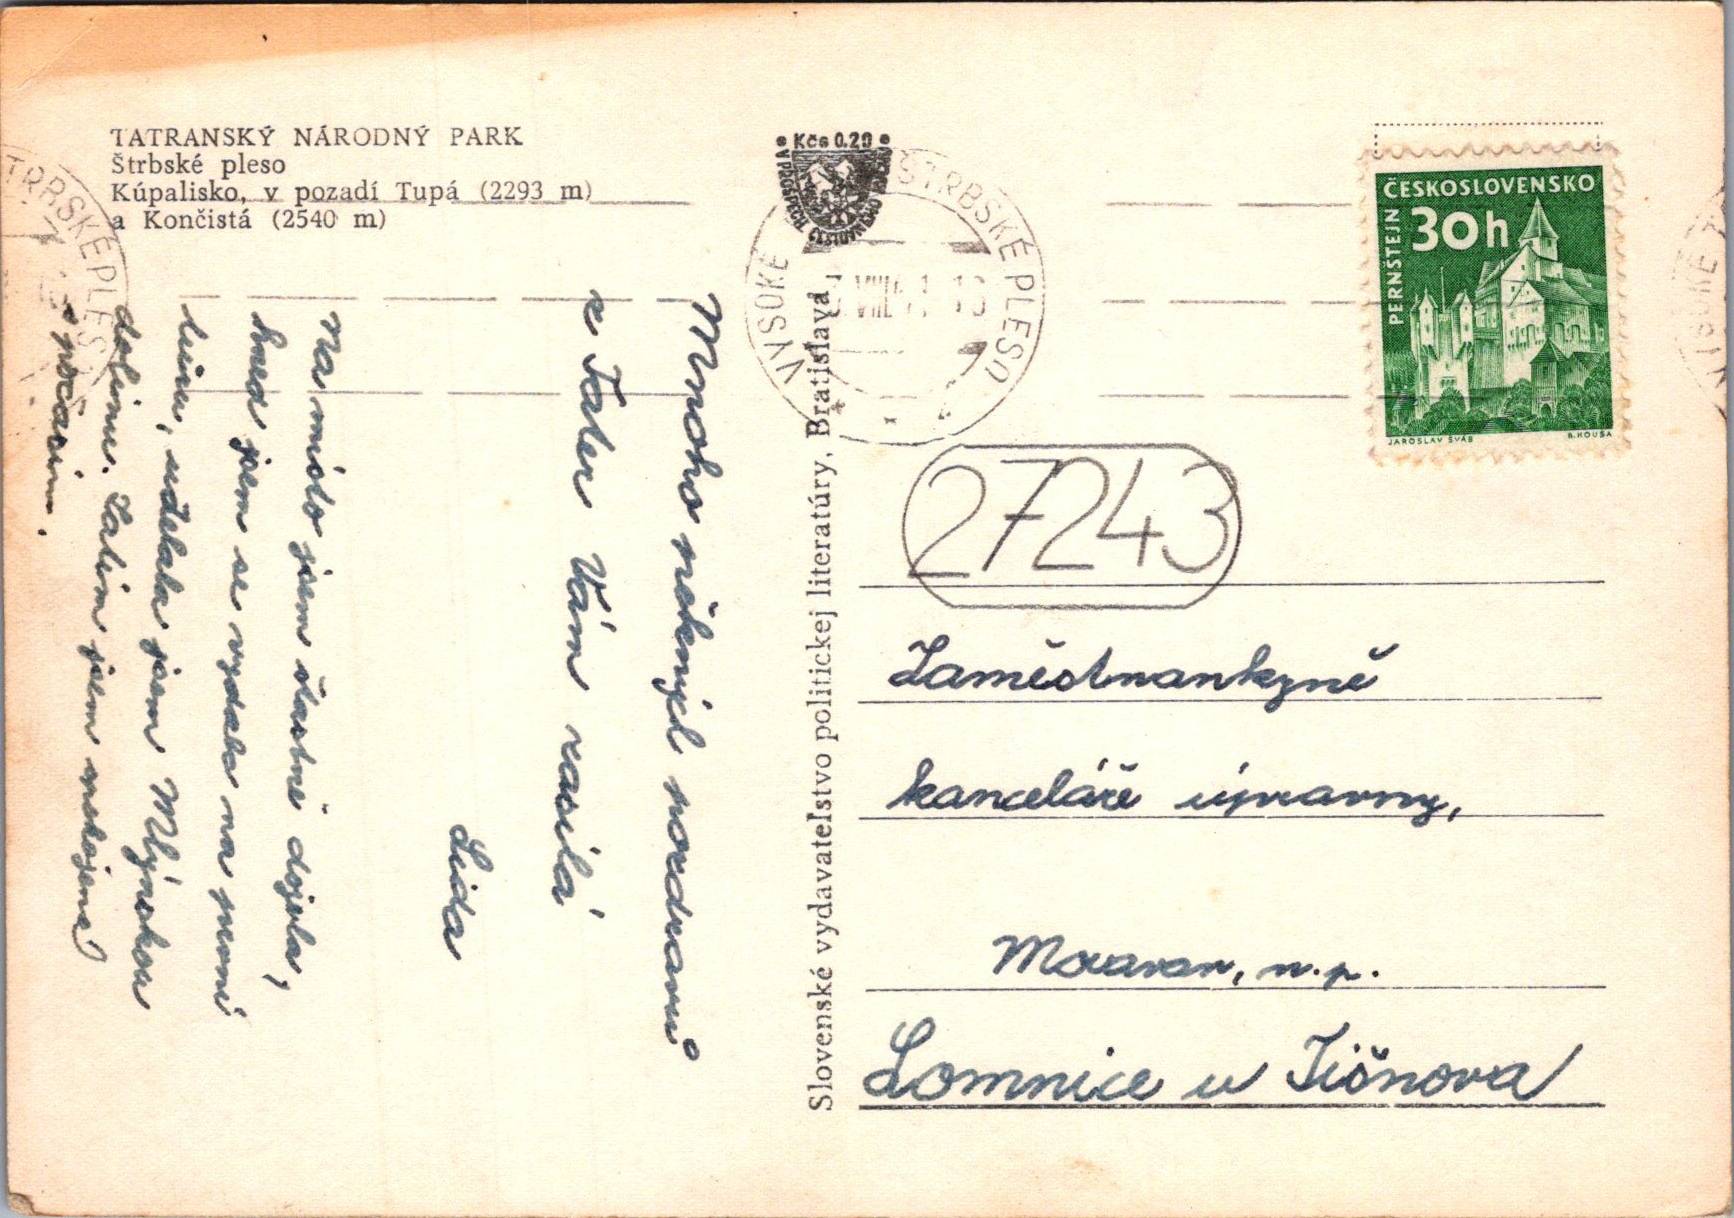 TATRANSKÝ NÁRODNÝ PARK
Štrbské pleso
Kúpalisko, v pozadí Tupá (2293 m)
a Končistá (2540 m)
Mnoho pěkných pozdravů
z Tater Vám zasílá
Lida
Na místo jsem šťastně dojela,
hned jsem se vydala na první
túru, udělala jsem Mlýnskou
dolinu. Zatím jsem spokojená
s počasím.
Slovenské vydavateľstvo politickej literatúry, Bratislava
Kčs 0.20
VYSOKÉ ŠTRBSKÉ PLESO
ČESKOSLOVENSKO
30h
PERNŠTEJN
JAROSLAV ŠVÁB
B. HOUSA
27243
Zaměstnankyně
kanceláře úpravny,
Moravan, n.p.
Lomnice u Tišnova